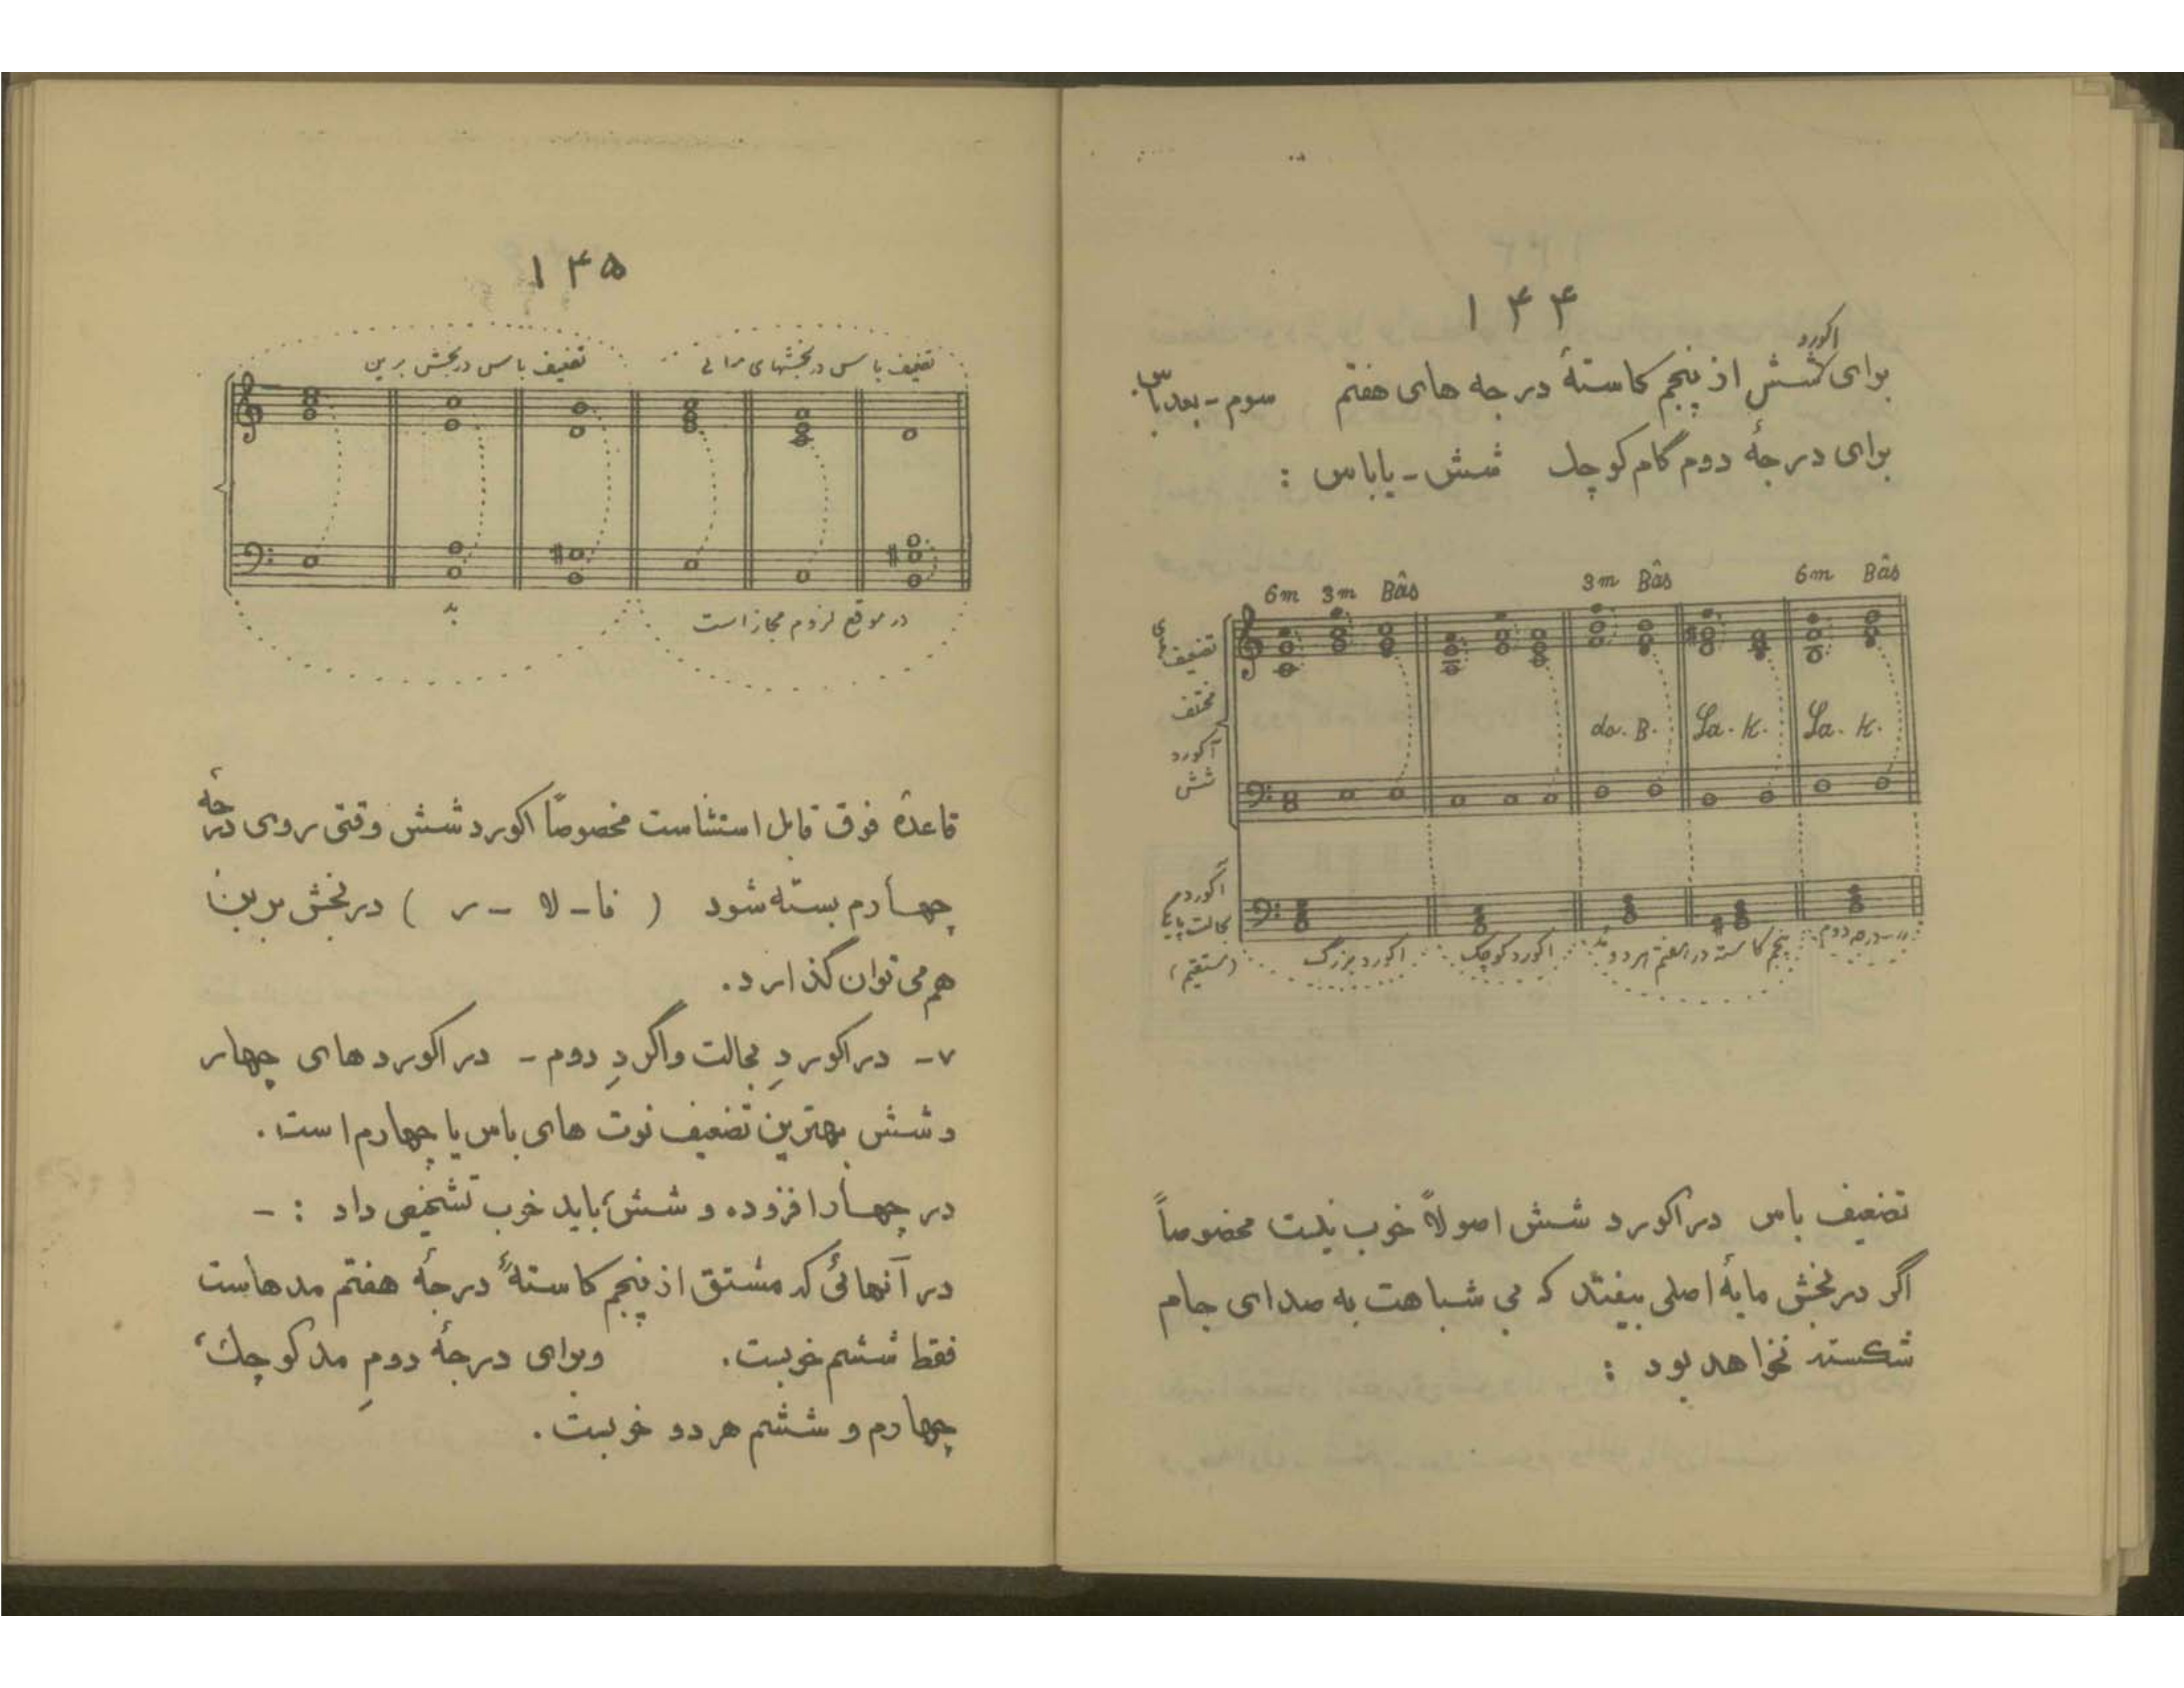 ۱۴۴
برای اکورد شش از پنجم کاستهٔ درجه های هفتم سوم - بعد باس
برای درجهٔ دوم گام کوچک شش - یا باس :
6m 3m Bâs 3m Bâs 6m Bâs
تضعیف
مختلف
آکورد
شش
do. B. La. K. La. K.
آکورد در
بحالت پایه
(مستقیم)
اکورد بزرگ اکورد کوچک پنجم کاسته در هفتم هر دو مد درجه دوم
تضعیف باس در اکورد شش اصولاً خوب نیست مخصوصاً
اگر در بخش مایهٔ اصلی بیفتد که بی شباهت به صدای جام
شکسته نخواهد بود :
۱۴۵
تضعیف باس در بخش برین تضعیف باس در بخشهای میانی
بد در موقع لزوم مجاز است
قاعدهٔ فوق قابل استثناست مخصوصاً اکورد شش وقتی روی درجهٔ
چهارم بسته شود ( فا - لا - ر ) در بخش برین
هم می توان گذارد.
۷- در اکوردِ بحالت واگردِ دوم - در اکورد های چهار
و شش بهترین تضعیف نوت های باس یا چهارم است.
در چهار افزوده و شش، باید خوب تشخیص داد : -
در آنهائی که مشتق از پنجم کاستهٔ درجهٔ هفتم مدهاست
فقط ششم خوبست. وبرای درجهٔ دومِ مد کوچک،
چهارم و ششم هر دو خوبست.